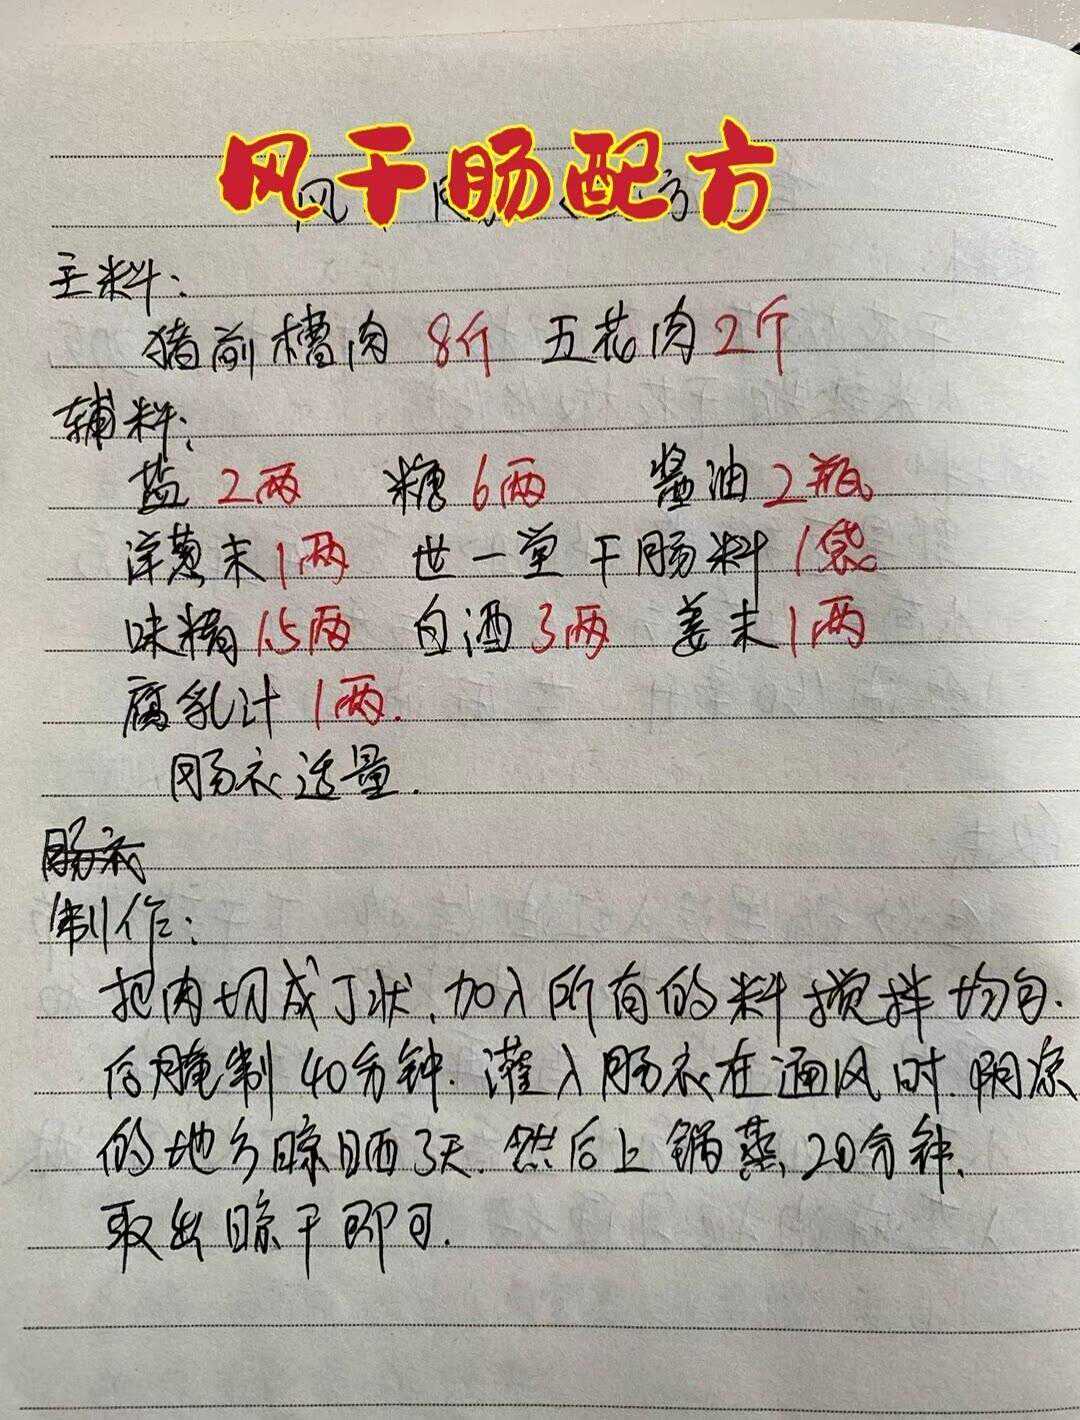 风干肠配方
主料:
猪前槽肉 8斤 五花肉 2斤
辅料:
盐 2两 糖 6两 酱油 2瓶
洋葱末 1两 世一堂干肠料 1袋
味精 1.5两 白酒 3两 姜末 1两
腐乳汁 1两.
肠衣适量.
肠衣
制作:
把肉切成丁状,加入所有的料搅拌均匀.
后腌制40分钟.灌入肠衣在通风时.阴凉
的地方晾晒3天.然后上锅蒸20分钟.
取出晾干即可.